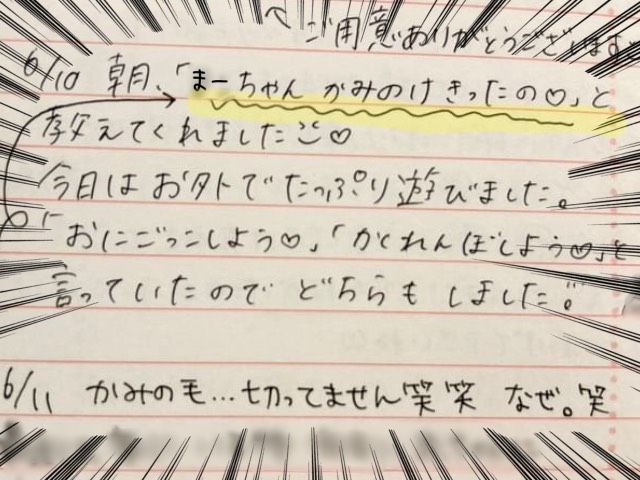 ご用意ありがとうございます
6/10 朝、「まーちゃん かみのけきったの♡」と
教えてくれました♡
今日はお外でたっぷり遊びました。
「おにごっこしよう♡」「かくれんぼしよう♡」と
言っていたので どちらも しました。
6/11 かみの毛…切ってません笑笑 なぜ。笑